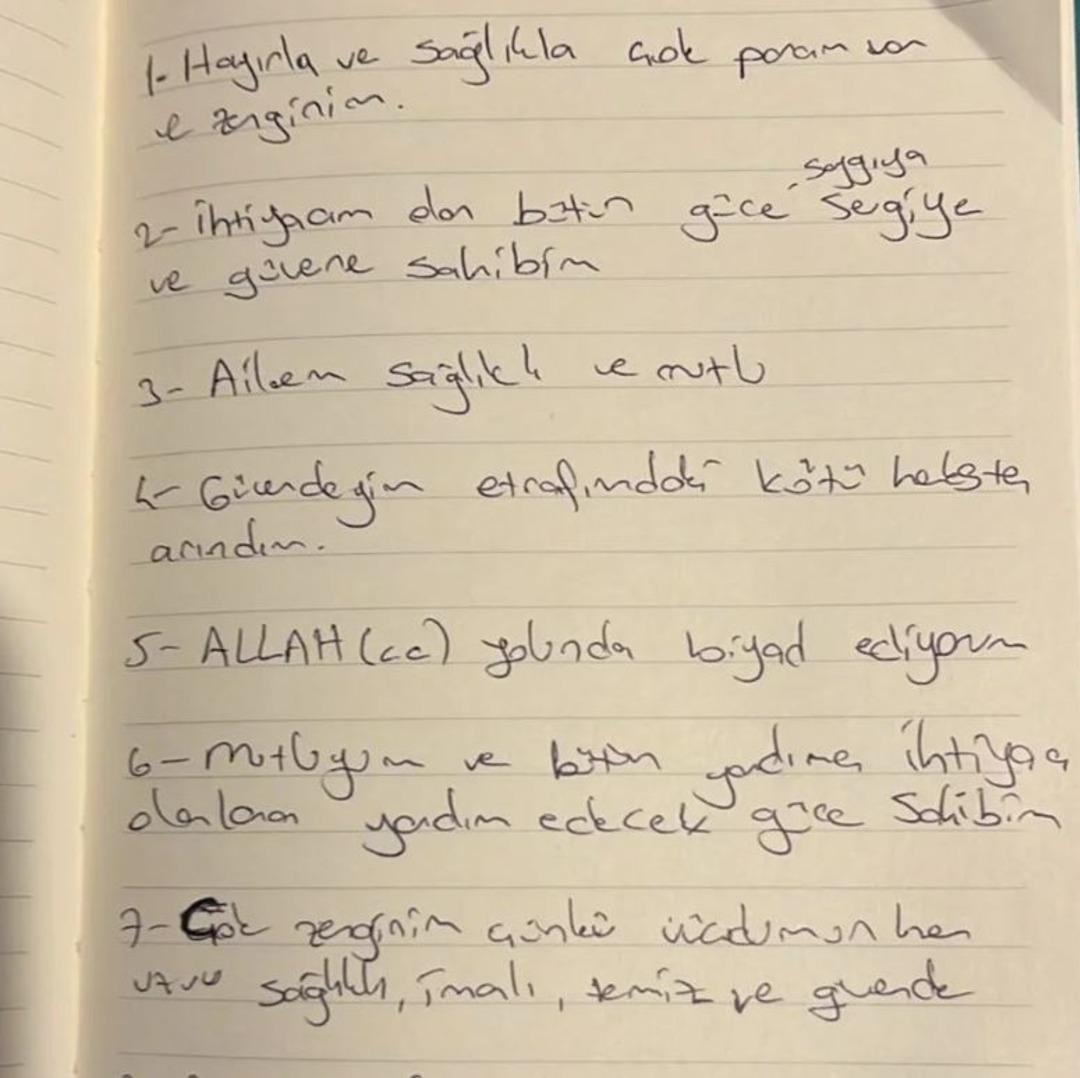 1- Hayırla ve sağlıkla çok param var
ve zenginim.
saygıya
2- ihtiyacım olan bütün güce, sevgiye
ve güvene sahibim
3- Ailem sağlıklı ve mutlu
4- Güvendeyim etrafımdaki kötü herkesten
arındım.
5- ALLAH (cc) yolunda biyad ediyorum
6- mutluyum ve bütün yardıma ihtiyacı
olanlara yardım edecek güce sahibim
7- Çok zenginim çünkü vücudumun her
uzvu sağlıklı, imalı, temiz ve güvende